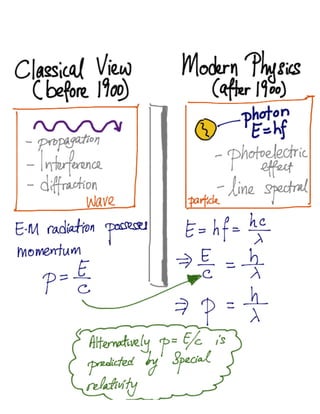 Classical View
(before 1900)
- propagation
- Interference
- diffraction
wave
E-M radiation possesses
momentum
p = E/c
Modern Physics
(after 1900)
photon
E=hf
- photoelectric
effect
- line spectral
particle
E = hf = hc/λ
⇒ E/c = h/λ
⇒ p = h/λ
Alternatively p= E/c is
predicted by Special
relativity